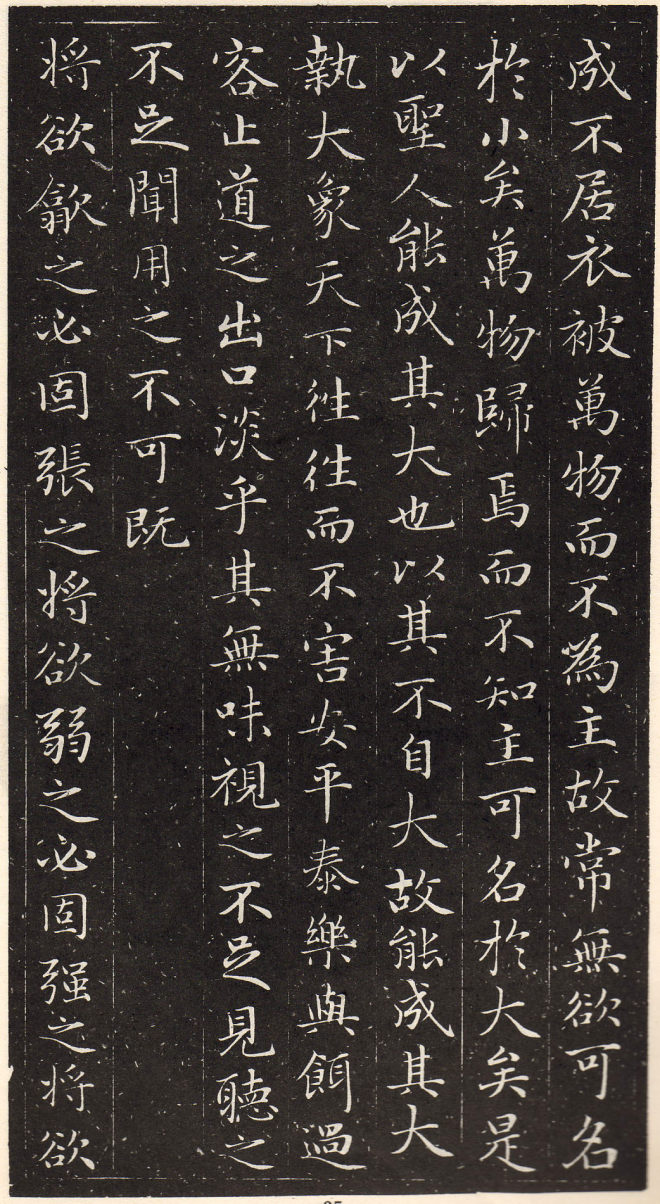 成不居衣被萬物而不為主故常無欲可名
於小矣萬物歸焉而不知主可名於大矣是
以聖人能成其大也以其不自大故能成其大
執大象天下往往而不害安平泰樂與餌過
客止道之出口淡乎其無味視之不足見聽之
不足聞用之不可既
将欲歙之必固張之将欲弱之必固强之将欲